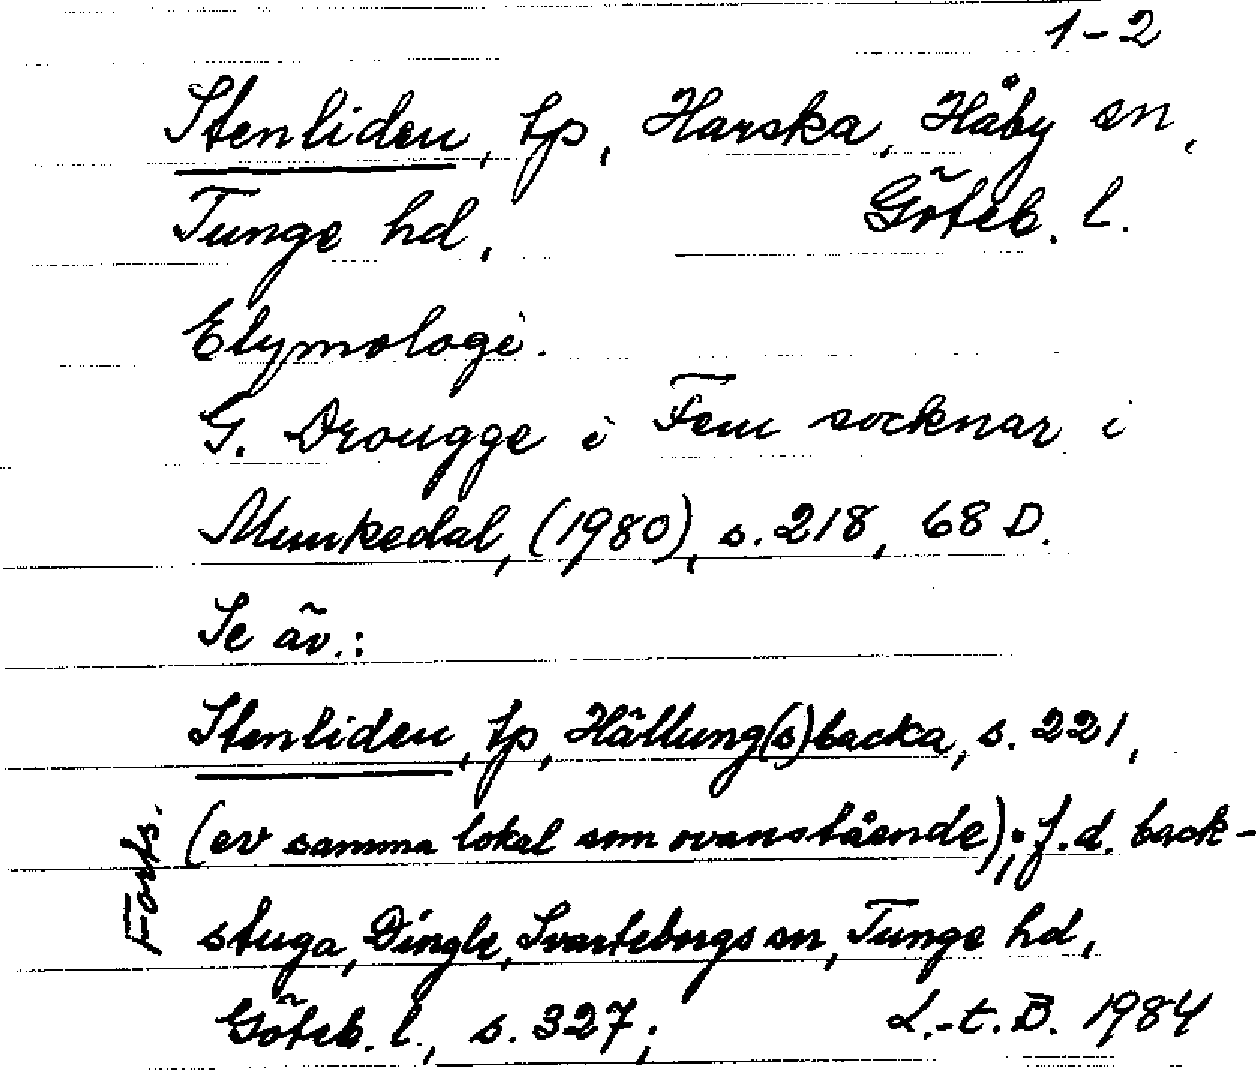 1-2
Stenliden, tp, Harska, Håby sn,
Tunge hd, Göteb. l.
Etymologi.
G. Drougge i Fem socknar i
Munkedal, (1980), s. 218, 68 D.
Se äv.:
Stenliden, tp, Hällung(s)backa, s. 221,
(ev samma lokal som ovanstående); f.d. back-
stuga, Dingle, Svarteborgs sn, Tunge hd,
Göteb. l., s. 327; L.-t. B. 1984
Forts.